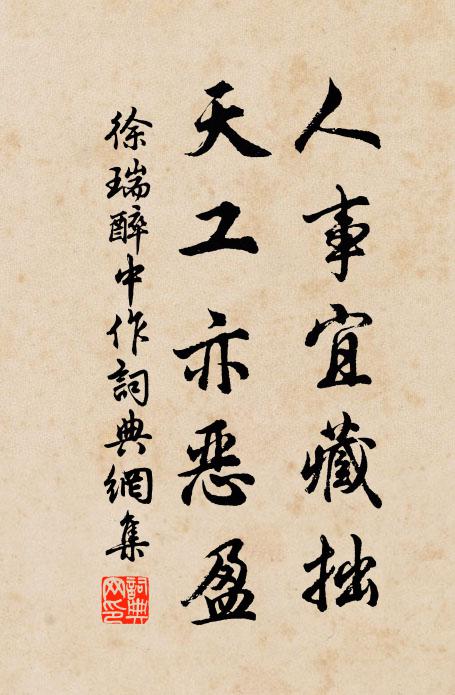 人事宜藏拙
天工亦恶盈
徐瑞醉中作詞典網集
詞典網印